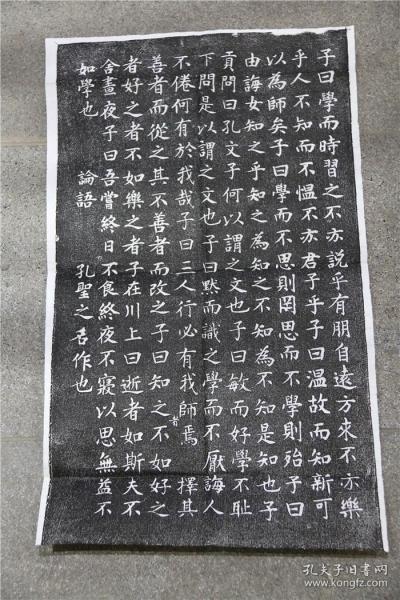 子曰學而時習之不亦説乎有朋自遠方來不亦樂
乎人不知而不愠不亦君子乎子曰温故而知新可
以為師矣子曰學而不思則罔思而不學則殆子曰
由誨女知之乎知之為知之不知為不知是知也子
貢問曰孔文子何以謂之文也子曰敏而好學不恥
下問是以謂之文也子曰黙而識之學而不厭誨人
不倦何有於我哉子曰三人行必有我師焉擇其
善者而從之其不善者而改之子曰知之者不如好之
者好之者不如樂之者子在川上曰逝者如斯夫不
舍晝夜子曰吾嘗終日不食終夜不寢以思無益不
如學也 論語 孔聖之名作也
孔夫子旧书网
www.kongfz.com